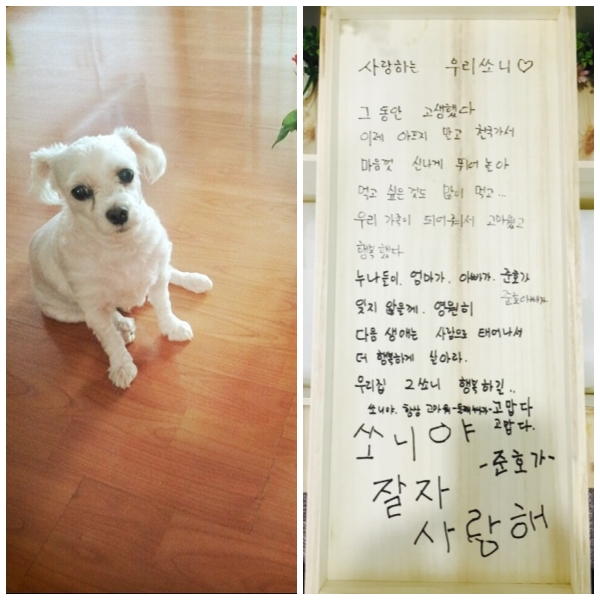 사랑하는 우리쏘니♡
그 동안 고생했다
이제 아프지 말고 천국가서
마음껏 신나게 뛰어 놀아
먹고 싶은것도 많이 먹고...
우리 가족이 되어줘서 고마웠고
행복했다
누나들이. 엄마가. 아빠가. 준호가
준호아빠가
잊지 않을께. 영원히
다음 생애는 사람으로 태어나서
더 행복하게 살아라.
우리집 그쏘니 행복하길..
쏘니야. 항상 고마워
고맙다
고맙다.
-준호가-
쏘니야
잘자
사랑해